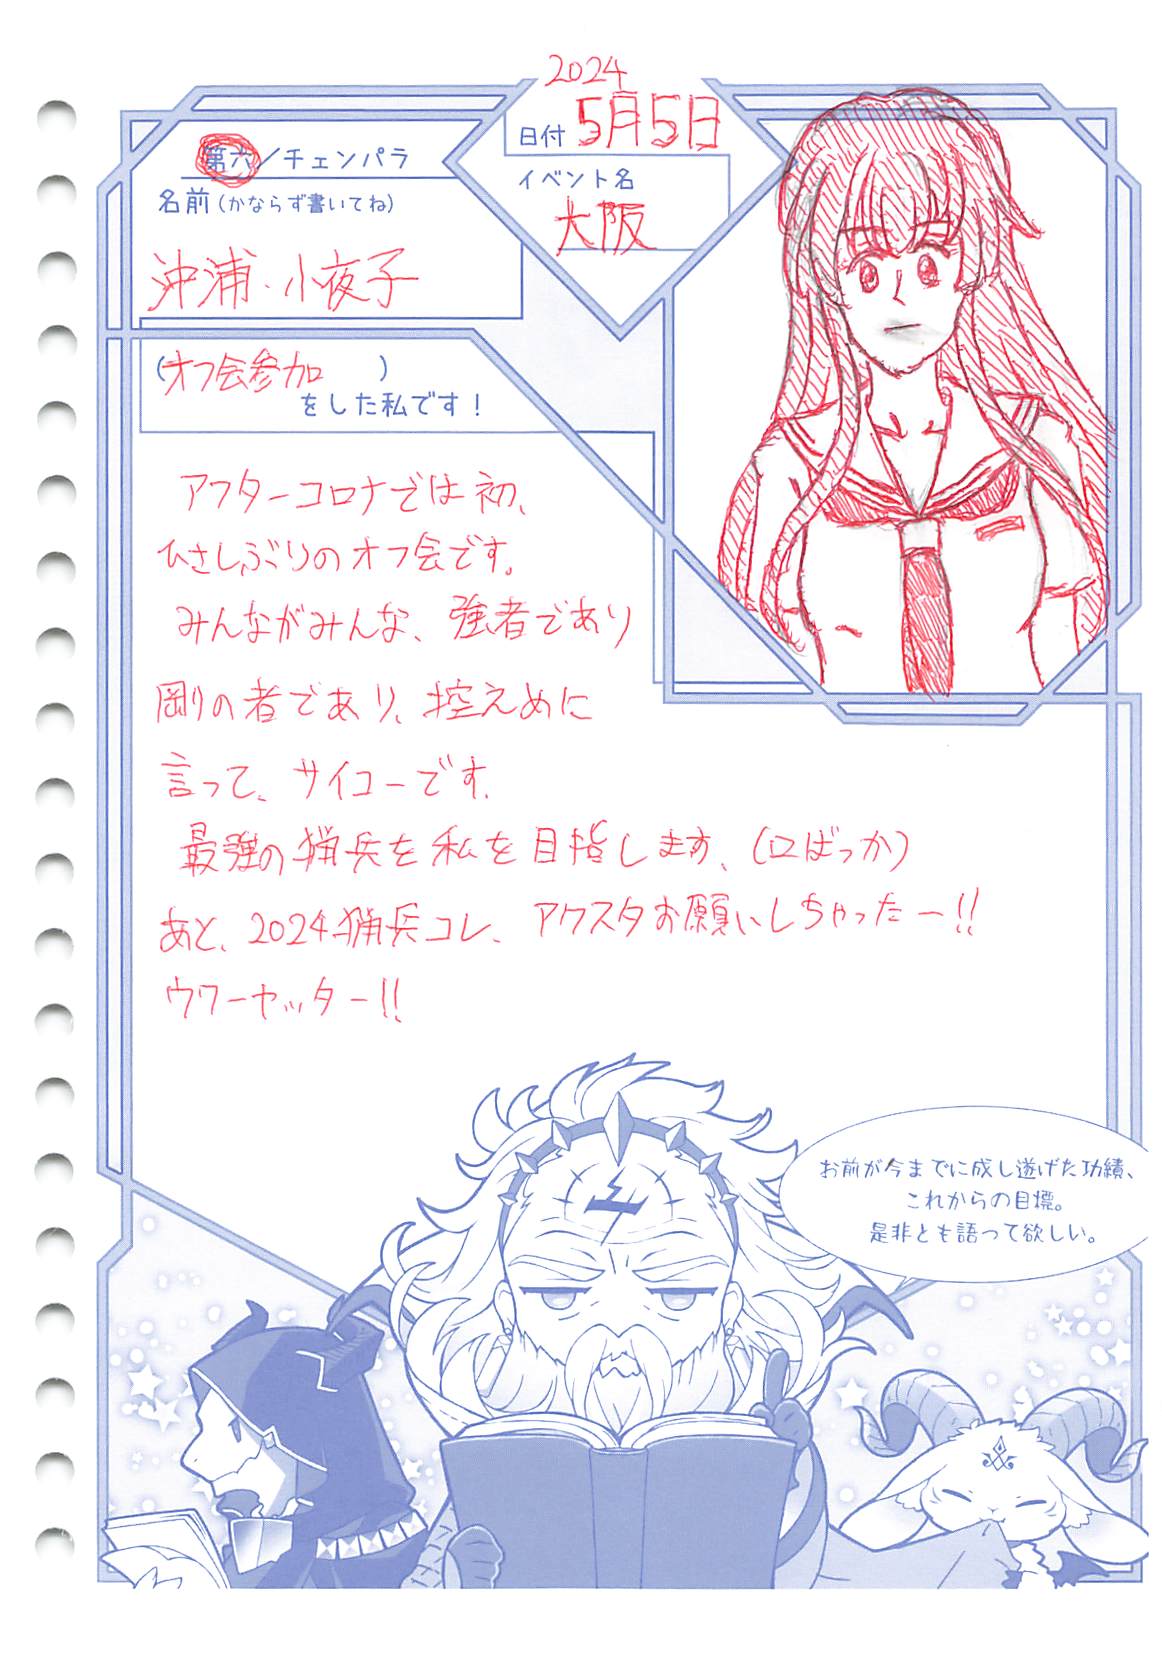 2024
日付 5月5日
イベント名
大阪
第六/チェンパラ
名前(かならず書いてね)
沖浦・小夜子
(オフ会参加 )
をした私です!
アフターコロナでは初、
ひさしぶりのオフ会です。
みんながみんな、強者であり
剛の者であり、控えめに
言って、サイコーです。
最強の猟兵を私を目指します、(口ばっか)
あと、2024猟兵コレ、アクスタお願いしちゃったー!!
ウワーヤッター!!
お前が今までに成し遂げた功績、
これからの目標。
是非とも語って欲しい。